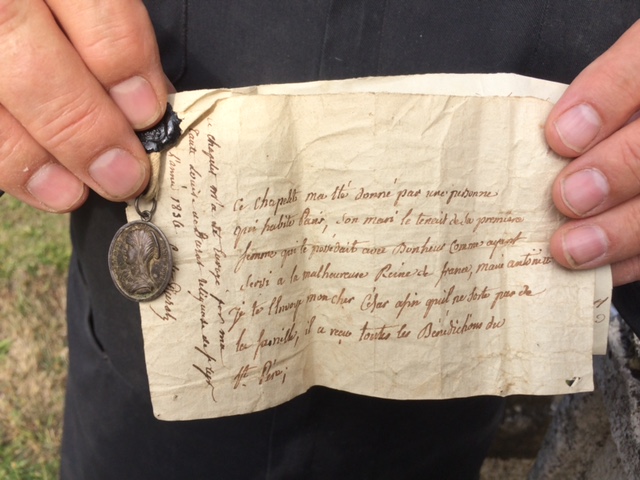 Ce Chapelet ma Eté donné par une personne
qui habite Paris, son mari le tenait de sa première
femme qui le possédait avec Bonheur Comme ayant
servi à la malheureuse Reine de france, marie antoinette
je te l'envoye mon cher César afin qu'il ne sorte pas de
la famille, il a reçu toutes les Bénédictions du
St. Père;
chapelet m'a été envoyé par ma
tante Louise religieuse
l'année 1836